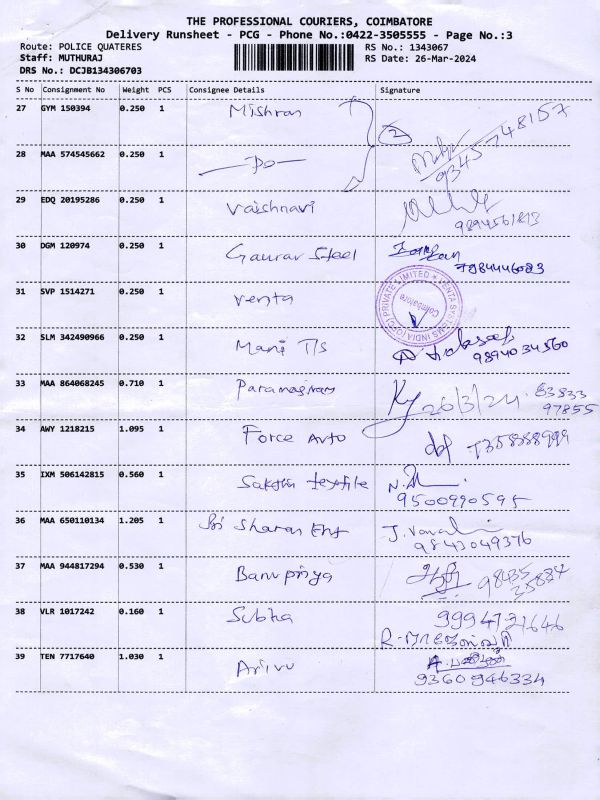 THE PROFESSIONAL COURIERS, COIMBATORE
Delivery Runsheet - PCG - Phone No.:0422-3505555 - Page No.:3
Route: POLICE QUATERES RS No.: 1343067
Staff: MUTHURAJ RS Date: 26-Mar-2024
DRS No.: DCJB134306703
S No Consignment No Weight PCS Consignee Details Signature
27 GYM 150394 0.250 1 Mishran 2
28 MAA 574545662 0.250 1 —Do— 9345748157
29 EDQ 20195286 0.250 1 Vaishnavi
30 DGM 120974 0.250 1 Gaurav Steel 7984446083
31 SVP 1514271 0.250 1 Venta VENTA SYSTEMS INDIA (OPC) PRIVATE LIMITED Coimbatore
32 SLM 342490966 0.250 1 Mani T/s 9894034560
33 MAA 864068245 0.710 1 26/3/24 83833
97855
34 AWY 1218215 1.095 1 Force Auto 7358888999
35 IXM 506142815 0.560 1 Sakthi textile
9500990595
36 MAA 650110134 1.205 1 Sri Sharan Ent
9843049376
37 MAA 944817294 0.530 1 Banupriya 98435
38 VLR 1017242 0.160 1 Subha
39 TEN 7717640 1.030 1 Arivu
9360946334